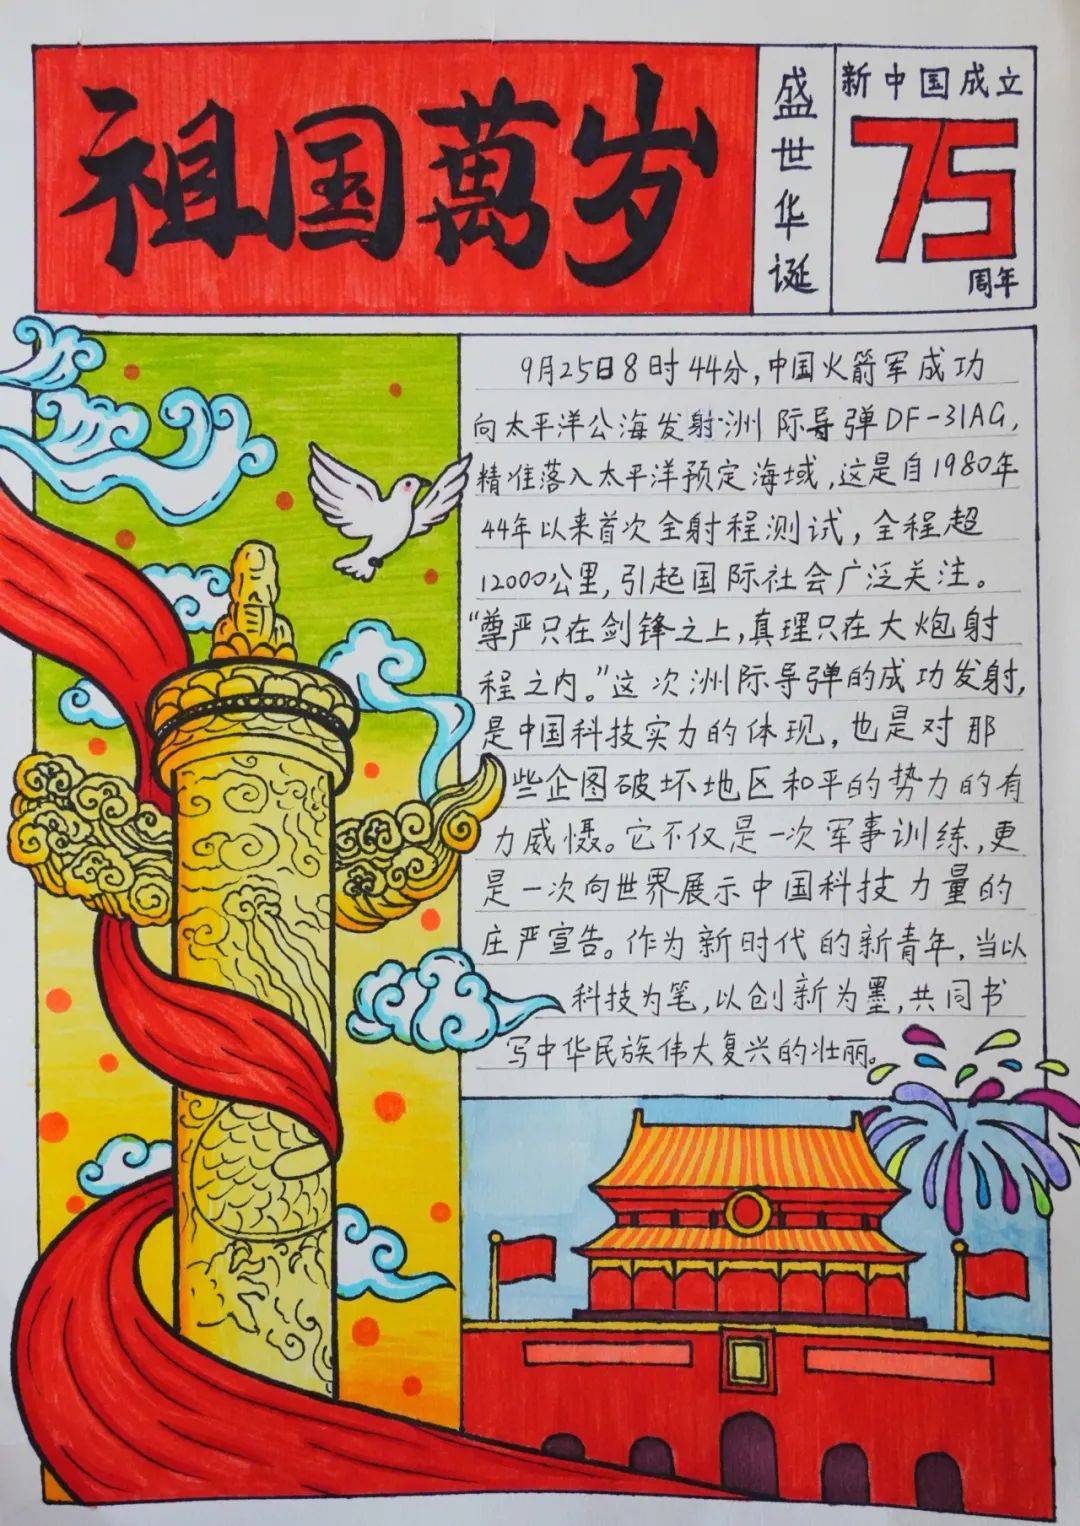 祖国萬岁
盛世华诞
新中国成立
75
周年
9月25日8时44分,中国火箭军成功
向太平洋公海发射洲际导弹DF-31AG,
精准落入太平洋预定海域,这是自1980年
44年以来首次全射程测试,全程超
12000公里,引起国际社会广泛关注。
“尊严只在剑锋之上,真理只在大炮射
程之内。”这次洲际导弹的成功发射,
是中国科技实力的体现,也是对那
些企图破坏地区和平的势力的有
力威慑。它不仅是一次军事训练,更
是一次向世界展示中国科技力量的
庄严宣告。作为新时代的新青年,当以
科技为笔,以创新为墨,共同书
写中华民族伟大复兴的壮丽。